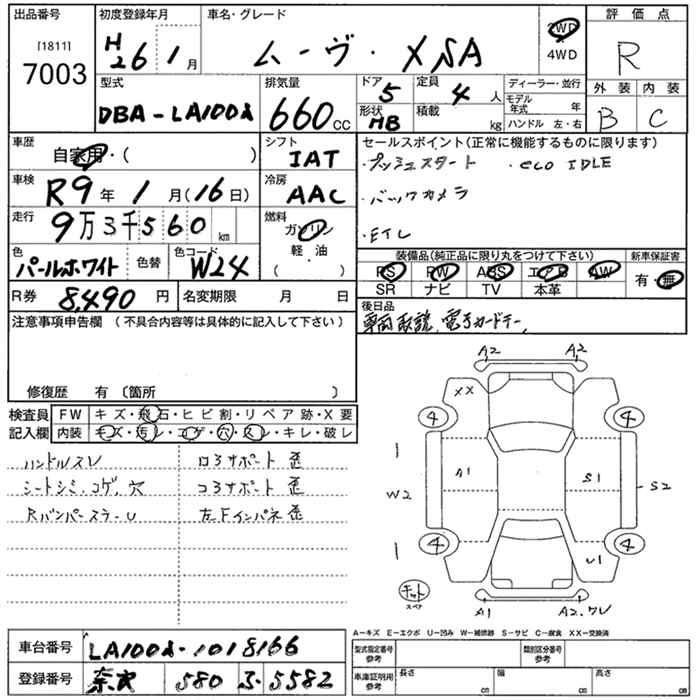 出品番号 初度登録年月 車名・グレード 評価点
[1811] 7003 H26年1月 ムーヴ・XSA 2WD 4WD R
型式 排気量 ドア 5 定員 4人 ディーラー・並行 外装 内装
DBA-LA100S 660cc 形状 HB 積載 kg モデル年式 年 ハンドル 左・右 B C
車歴 自家用・( ) シフト IAT セールスポイント(正常に機能するものに限ります)
・プッシュスタート ・eco IDLE
車検 R9年1月(16日) 冷房 AAC ・バックカメラ
走行 9万3千560km 燃料 ガソリン 軽・油 ( ) ・ETC
色 パールホワイト 色替 色コード W24 装備品(純正品に限り丸をつけて下さい) 新車保証書
PS PW ABS エアB AW 有・無
SR ナビ TV 本革
R券 8,490円 名変期限 月 日 後日品
注意事項申告欄 (不具合内容等は具体的に記入して下さい) 車両取説、電子カードテー。
修復歴 有〔箇所 〕
検査員 FW キズ・飛石・ヒビ割・リペア跡・X要
記入欄 内装 キズ・汚レ・コゲ・穴・スレ・キレ・破レ
ハンドルスレ ロアサポート 歪
シートシミ・コゲ、穴 コアサポート 歪
RバンパーステーU 左Fインパネ 歪
A2 A2
XX
4 4
A1 S1 S2
W2
4 4
U1
キット スペア
A1 A2.
A-キズ E-エクボ U-凹み W-補修跡 S-サビ C-腐食 XX-交換済
車台番号 LA100S-1018166 型式指定番号 参考 類別区分番号 参考
登録番号 奈良 580 ふ 5582 車庫証明用 参考 長さ cm 幅 cm 高さ cm